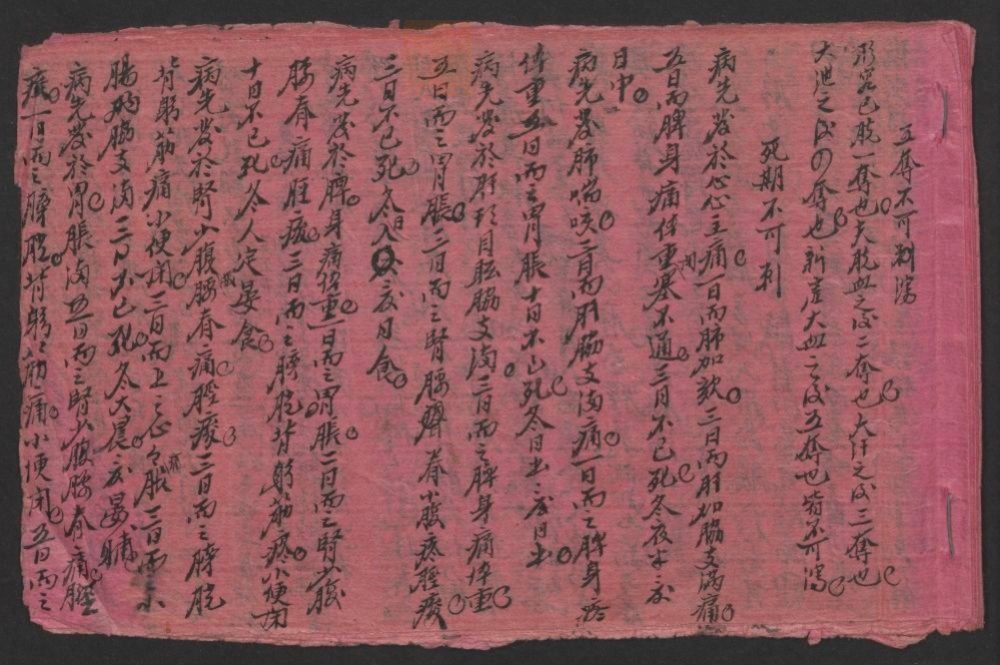 五奪不可刺瀉
形容已脱一奪也大脱血之後二奪也大汗之後三奪也
大泄之後四奪也新產大血之後五奪也皆不可瀉
死期不可刺
病先發於心心主痛一日而肺加欬三日而肝加脇支滿痛
五日而脾身痛体重塞不通三日不已死冬夜半夏
日中
病先發肺喘咳三日而肝脇支滿痛一日而之脾身疼
体重五日而之胃脹十日不已死冬日出夏日出
病先發於肝頭目眩脇支滿三日而之脾身痛体重
五日而之胃脹三日而之腎腰臍脊小腹疼脛痠
三日不已死冬日入夏日食
病先發於脾身痛体重一日而之胃脹二日而之腎少腹
腰脊痛脛痠三日而之膀胱背膂筋疼小便閉
十日不已死冬人定夏晏食
病先發於腎少腹腰脊痛脛痠三日而之膀胱
背膂筋痛小便閉三日而上之心心脹三日而小
腸胸脇支滿三日不已死冬大晨夏晏晡
病先發於胃脹滿五日而之腎少腹腰脊痛脛
痠一日而之膀胱背膂筋痛小便閉五日而之